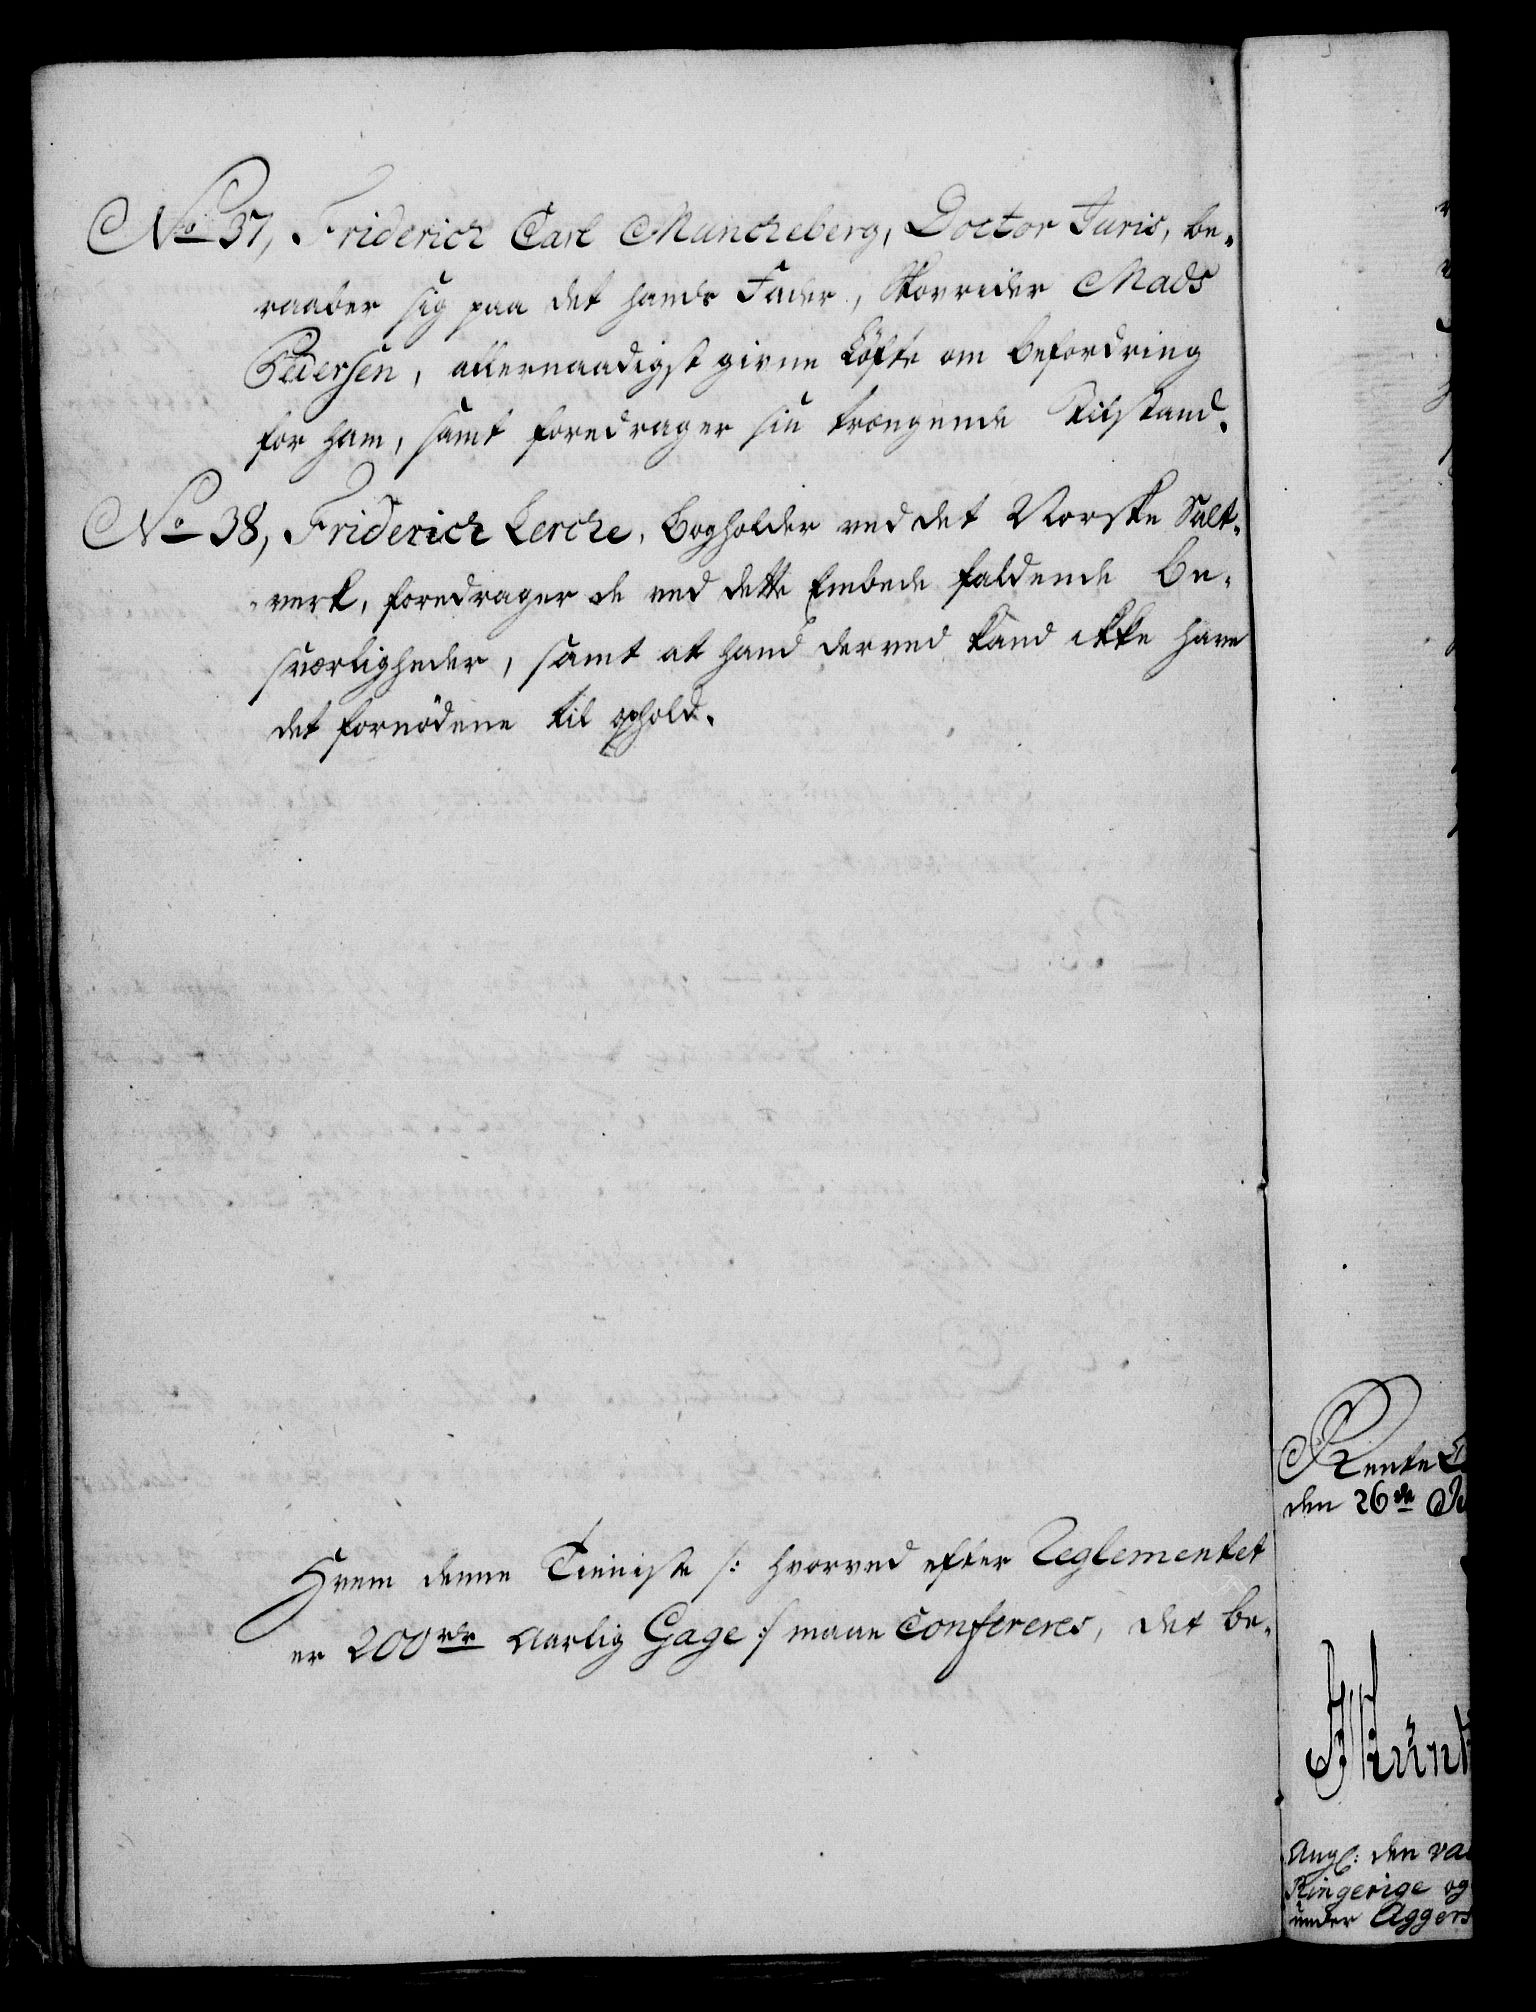 No 37, Friderich Carl Muncheberg, Doctor Juris, be-
raaber sig paa det hands Fader, Skovrider Mads
Pedersen, allernaadigst givne Löfte om befordring
for ham, samt foredrager sin trængende Tilstand.
No 38, Friderich Lerche, Bogholder ved det Norske Salt-
-verk, foredrager de ved dette Embede faldende be-
sværligheder, samt at hand derved kand ikke have
det fornödene til ophold.
Hvem denne Tieniste /: hvorved efter Reglementet
er 200 rdr aarlig Gage :/ maae confereres, det be-
Rente
den 26de
Angl: den
Ringerige og
under Aggers